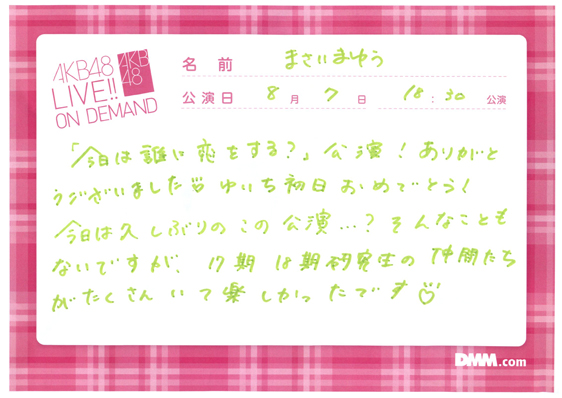 AKB48
LIVE!!
ON DEMAND
AKB
48
名前 まさいまゆう
公演日 8月7日 18:30 公演
「今日は誰に恋をする?」公演!ありがと
うございました♡ ゆいち初日おめでとう!
今日は久しぶりのこの公演...?そんなことも
ないですが、17期18期研究生の仲間たち
がたくさんいて楽しかったです♡
DMM.com